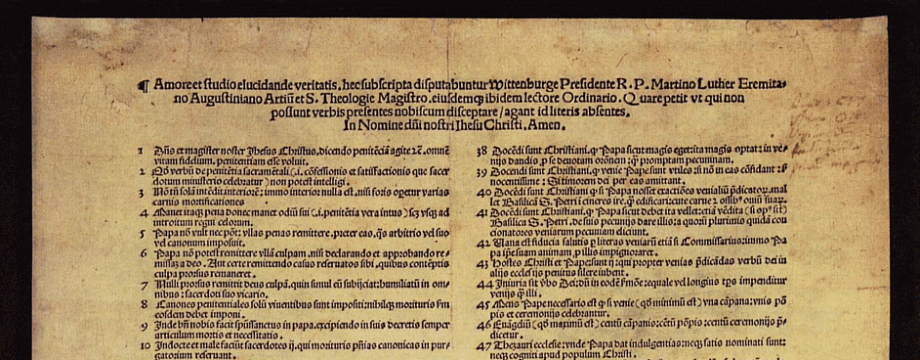 ¶ Amore et studio elucidande veritatis. hec subscripta disputabuntur Wittenburge Presidente R. P. Martino Luther Eremita-
no Augustiniano Artiū et S. Theologie Magistro. eiusdemq; ibidem lectore Ordinario. Quare petit vt qui non
possunt verbis presentes nobiscum disceptare / agant id literis absentes.
In Nomine dñi nostri Ihesu Christi. Amen.
1 Dñs et magister noster Ihesus Christus, dicendo penitētiā agite ⁊c. omnē
vitam fidelium, penitentiam esse voluit.
2 Qd verbū de penitētia sacramētali (.i. cōfessionis et satisfactionis que sacer
dotum ministerio celebratur) non potest intelligi.
3 Nō tñ solā intēdit interiorē: immo interior nulla est, nisi foris operetur varias
carnis mortificationes
4 Manet itaq; pena donec manet odiū sui (.i. penitētia vera intus) scz vsq; ad
introitum regni celorum.
5 Papa nō vult nec pōt, vllas penas remittere, preter eas, q̄s arbitrio vel suo
vel canonum imposuit.
6 Papa nō potest remittere vllā culpam, nisi declarando et approbando re-
missaz a deo. Aut certe remittendo casus reservatos sibi, quibus contēptis
culpa prosus remaneret.
7 Nulli prosus remittit deus culpā, quin simul eū subijciat: humiliatū in om-
nibus: sacerdoti suo vicario.
8 Canones penitentiales solū viuentibus sunt impositi: nihilq; morituris ꝑm
eosdem debet imponi.
9 Inde bñ nobis facit spūssanctus in papa. excipiendo in suis decretis semper
articulum mortis et necessitatis.
10 Indocte et male faciūt sacerdotes ij, qui morituris pñias canonicas in pur-
gatorium reseruant.
38 Docēdi sunt Christiani, ꝙ Papa sicut magis eget: ita magis optat: in ve-
nijs dandis, ꝓ se deuotam orōnem: ꝙ̄ promptam pecuniam.
39 Docendi sunt Christiani, ꝙ venie Pape sunt vtiles: si nō in eas cōfidant: ꝫ
nocentissime: Si timorem dei per eas amittant.
40 Docēdi sunt Christiani, ꝙ si Papa nosset exactiões venialiū p̄dicatoꝝ, mal
let Basilicā S. Petri in cineres ire, ꝙ̄ edificari: cute carne ⁊ ossibꝰ ouiū suaꝝ.
41 Docēdi sunt Christiani, ꝙ Papa sicut debet ita vellet: etiā vēdita (si opꝰ sit)
Basilica S. Petri, de suis pecunijs dare illis: a quoꝝ plurimis quidā con
cionatores veniarum pecuniam eliciunt.
42 Vana est fiducia salutis ꝑ literas veniarū etiā si Commissarius: immo Pa
pa ip̄e suam animam ꝓ illis impignoraret.
43 Hostes Christi et Pape sunt ij: qui propter venias p̄dicādas verbū dei in
alijs ecclesijs penitus silere iubent.
44 Iniuria fit ṽbo Dei: dū in eodē sermōe: equale vel longius tꝑs impenditur
venijs ꝙ̄ illi.
45 Mens Pape necessario est ꝙ si venie (qd̄ minimū est) vna cāpana: vnis pō
pis et ceremonijs celebrantur.
46 Euāgeliū (qd̄ maximū est) centū cāpanis: cētū pōpis: centū ceremonijs p̄-
dicetur.
47 Thezauri ecclesie: vnde Papa dat indulgentias: neq; satis nominati sunt:
neq; cogniti apud populum Christi.